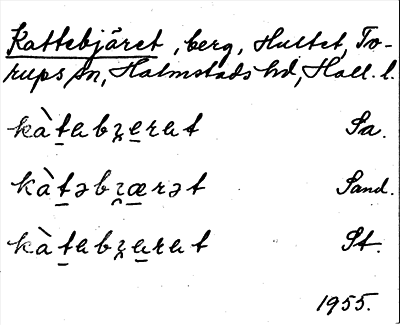 Kattebjäret, berg, Hultet, To-
rups sn, Halmstads hd, Hall. l.
kàt̲ab̯ze̲rat Sa.
kàt̲əbz̯æ̲rət Sand.
kàt̲abz̯a̲rat St.
1955.